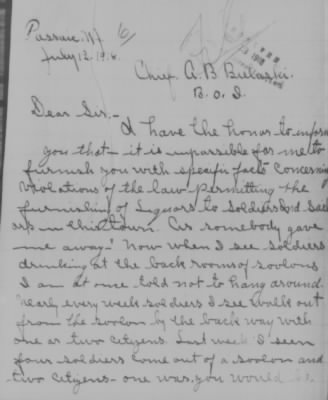 Passaic, NJ 6/
July 12, 1918.
Chief A. B. Bielaski.
B. o. I.
Dear Sir,-
I have the honor to inform
you that - it is impossible for me to
furnish you with specific facts concerning
violations of the law permitting the
furnishing of Liquors to Soldiers and Sail
ors in this town. As somebody gave
me away. Now when I see Soldiers
drinking at the back rooms of sooloons
I am at once told not to hang around.
Nearly every week soldiers I see walk out
from the sooloon by the back way with
one or two cityzens. Last week I seen
four soldiers come out of a sooloon and
two cityzens - one was, you would be